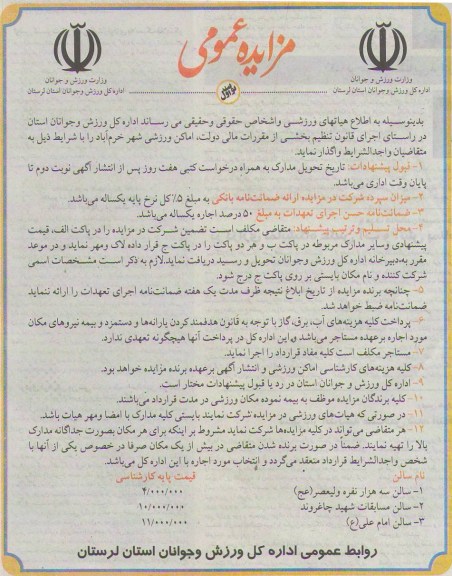 مزایده عمومی
وزارت ورزش و جوانان
اداره کل ورزش وجوانان استان لرستان
وزارت ورزش و جوانان
اداره کل ورزش وجوانان استان لرستان
نوبت اول
بدینوسیله به اطلاع هیاتهای ورزشی واشخاص حقوقی وحقیقی می رساند اداره کل ورزش وجوانان استان
در راستای اجرای قانون تنظیم بخشی از مقررات مالی دولت، اماکن ورزشی شهر خرم‌آباد را با شرایط ذیل به
متقاضیان واجدالشرایط واگذار نماید.
۱- قبول پیشنهادات: تاریخ تحویل مدارک به همراه درخواست کتبی هفت روز پس از انتشار آگهی نوبت دوم تا
پایان وقت اداری می‌باشد.
۲- میزان سپرده شرکت در مزایده ارائه ضمانت‌نامه بانکی به مبلغ ۵٪ کل نرخ پایه یکساله می‌باشد.
۳- ضمانت‌نامه حسن اجرای تعهدات به مبلغ ۵۰ درصد اجاره یکساله می‌باشد.
۴- محل تسلیم و ترتیب پیشنهاد: متقاضی مکلف است تضمین شرکت در مزایده را در پاکت الف، قیمت
پیشنهادی و سایر مدارک مربوطه در پاکت ب و هر دو پاکت را در پاکت ج قرار داده لاک ومهر نماید و در موعد
مقرر به دبیرخانه اداره کل ورزش وجوانان تحویل و رسید دریافت نماید.لازم به ذکر است مشخصات اسمی
شرکت کننده و نام مکان بایستی بر روی پاکت ج درج شود.
۵- چنانچه برنده مزایده از تاریخ ابلاغ نتیجه ظرف مدت یک هفته ضمانت‌نامه اجرای تعهدات را ارائه ننماید
ضمانت‌نامه ضبط خواهد شد.
۶- پرداخت کلیه هزینه‌های آب، برق، گاز با توجه به قانون هدفمند کردن یارانه‌ها و دستمزد و بیمه نیروهای مکان
مورد اجاره برعهده مستاجر می‌باشد و این اداره کل در پرداخت آنها هیچگونه تعهدی ندارد.
۷- مستاجر مکلف است کلیه مفاد قرارداد را اجرا نماید.
۸- کلیه هزینه‌های کارشناسی اماکن ورزشی و انتشار آگهی برعهده برنده مزایده خواهد بود.
۹- اداره کل ورزش و جوانان استان در رد یا قبول پیشنهادات مختار است.
۱۰- کلیه برندگان مزایده موظف به بیمه نموده مکان ورزشی در مدت قرارداد می‌باشند.
۱۱- در صورتی که هیات‌های ورزشی در مزایده شرکت نمایند بایستی کلیه مدارک با امضا ومهر هیات باشد.
۱۲- هر متقاضی می‌تواند در کلیه مزایده‌ها شرکت نماید مشروط بر اینکه برای هر مکان بصورت جداگانه مدارک
بالا را تهیه نمایند. ضمناً در صورت برنده شدن متقاضی در بیش از یک مکان صرفا در خصوص یکی از آنها با
شخص واجدالشرایط قرارداد منعقد می‌گردد و انتخاب مورد اجاره با این اداره کل می‌باشد.
نام سالن
قیمت پایه کارشناسی
۱- سالن سه هزار نفره ولیعصر(عج)
۴/۰۰۰/۰۰۰
۲- سالن مسابقات شهید چاغروند
۱۰/۰۰۰/۰۰۰
۳- سالن امام علی(ع)
۱۱/۰۰۰/۰۰۰
روابط عمومی اداره کل ورزش وجوانان استان لرستان